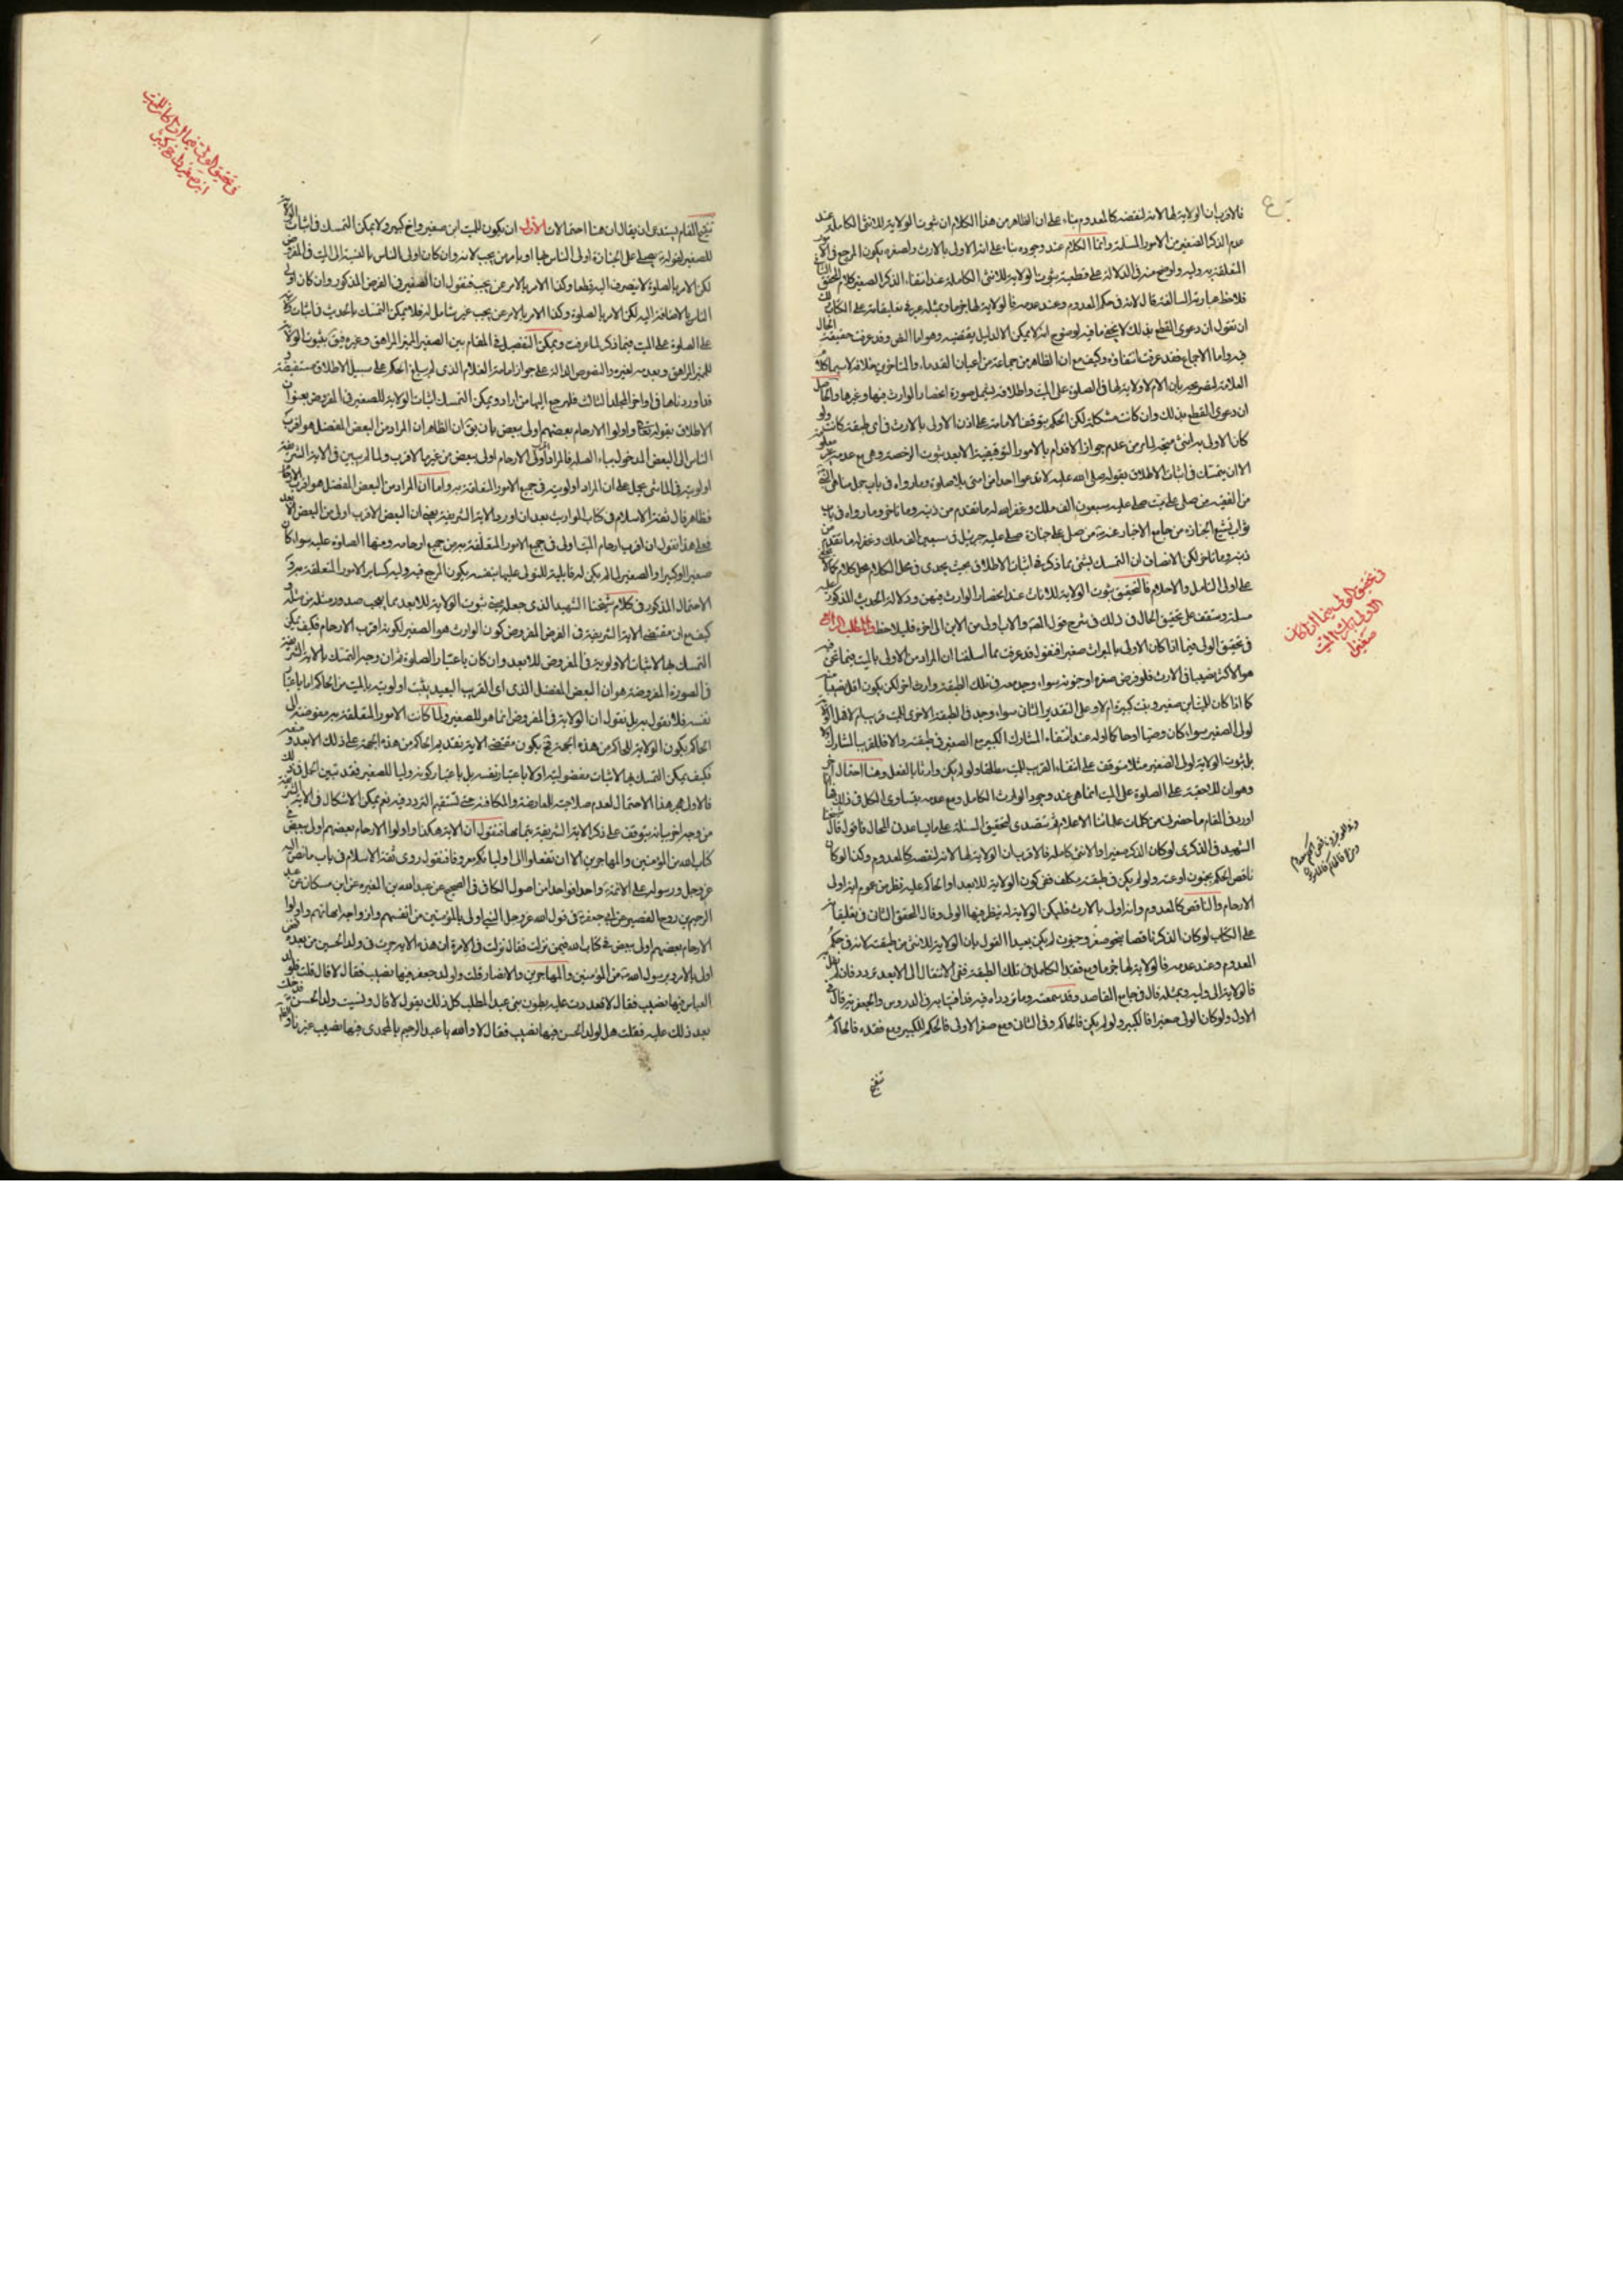 فالاقرب ان الولاية لها لانه لنقصه كالمعدوم بناء على ان الظاهر من هذا الكلام ان ثبوت الولاية للانثى الكاملة عند
عدم الذكر الصغير من الامور المسلمة وانما الكلام عند وجوده بناء على انه الاولى بالارث ولصغره يكون المرجع في الامور
المتعلقة به وليه واوضح منه في الدلالة على قطعية ثبوت الولاية للانثى الكاملة عند انتفاء الذكر الصغير كلام المحقق الثاني
فلاحظ عبارته السالفة قال لانه في حكم المعدوم وعند عدمه فالولاية لها جزما وبمثله عبر في تعليقاته على الكتاب
ان نقول ان دعوى القطع بذلك لا يخفى ما فيه لوضوح انه لا يمكن الا لدليل يقتضيه وهو اما النص وقد عرفت حقيقة الحال
فيه واما الاجماع فقد عرفت انتفاؤه وكيف مع ان الظاهر من جماعة من اعيان القدماء والمتاخرين خلافه لا سيما كلام
العلامة لتصريحه بان الام لا ولاية لها في الصلوة على الميت واطلاقه يشمل صورة انحصار الوارث فيها وغيرها والحاصل
ان دعوى القطع بذلك وان كانت مشكلة لكن الحكم بتوقف الامامة على اذن الاولى بالارث في اى طبقة كانت ولو
كان الاولى به انثى متجه لما مر من عدم جواز الاقدام بالامور التوقيفية الا بعد ثبوت الرخصة وهي مع عدمه غير معلومة
الا ان يتمسك في اثبات الاطلاق بقوله صلى الله عليه لا تدعوا احدا من امتى بلا صلوة وما رواه في باب
من الفقيه من صلى على ميت صلى عليه سبعون الف ملك وغفر الله له ما تقدم من ذنبه وما تاخر وما رواه في باب
ثواب تشييع الجنازة من جامع الاخبار عنه من صلى على جنازة صلى عليه جبرئيل في سبعين الف ملك وغفر له ما تقدم من
ذنبه وما تاخر لكن الانصاف ان التمسك بشئ مما ذكر في اثبات الاطلاق بحيث يجدى في محل الكلام محل كلام
على اولى التامل والاحلام فالتحقيق ثبوت الولاية للاناث عند انحصار الوارث فيهن ودلالة الحديث المذكور عليه
مسلمة وستقف على تحقيق الحال في ذلك في شرح قول المصنف والاب اولى من الابن الى اخره فليلاحظ المطلب الرابع
في تحقيق الولى فيما اذا كان الاولى بالميراث صغيرا فنقول قد عرفت مما اسلفنا ان المراد من الاولى بالميت فيما نحن فيه
هو الاكثر نصيبا في الارث فلو فرض صغره او جنونه سواء وجد معه في تلك الطبقة وارث اخر لكن يكون اقل نصيبا منه
كما اذا كان للميت ابن صغير وبنت كبيرة ام لا وعلى التقدير الثانى سواء وجد في الطبقة الاخرى للميت قريب ام لا فهل الولاية
لولى الصغير سواء كان وصيا او حاكما او له عند انتفاء المشارك الكبير مع الصغير في طبقته والا فللقريب المشارك
بل ثبوت الولاية لولى الصغير مثلا متوقف على انتفاء القريب للميت مطلقا ولو لم يكن وارثا بالفعل وهنا احتمال اخر
وهو ان للاحقية على الصلوة على الميت انما هى عند وجود الوارث الكامل ومع عدمه يتساوى الكل في ذلك
اورد في المقام ما حضرنى من كلمات علمائنا الاعلام ثم نتصدى لتحقيق المسئلة على ما يساعدنى الحال فاقول قال شيخنا
الشهيد في الذكرى لو كان الذكر صغيرا والانثى كاملة فالاقرب ان الولاية لها لانه لنقصه كالمعدوم وكذا لو كان
ناقص الحكم بجنون او عته ولو لم يكن في طبقته مكلف ففى كون الولاية للابعد او الحاكم عليه نظر من عموم اية اولى
الارحام والناقص كالمعدوم وانه اولى بالارث فليكن الولاية له ينظر فيها الولى وقال المحقق الثانى في تعليقاته
على الكتاب لو كان الذكر ناقصا بنحو صغر وجنون لم يكن بعيدا القول بان الولاية للانثى من طبقته لانه في حكم
المعدوم وعند عدمه فالولاية لها جزما ومع فقد الكامل في تلك الطبقة ففى الانتقال الى الابعد تردد فان لم نقل
فالولاية الى وليه وبمثله قال في جامع المقاصد وقد سمعته وما تردداه فيه قد افتيا به في الدروس والجعفرية قال في
الاول ولو كان الولى صغيرا فالكبير ولو لم يكن فالحاكم وفى الثانى ومع صغر الاولى فالحكم للكبير ومع فقده فالحاكم
تنقيح
في تحقيق الولى فيما اذا كان
الاولى بارث الميت
صغيرا
تنقيح المقام يستدعى ان يقال ان هنا احتمالات الاول ان يكون للميت ابن صغير واخ كبير ولا يمكن التمسك في اثبات الولاية
للصغير بقوله يصلى على الجنازة اولى الناس بها او يامر من يحب لانه وان كان اولى الناس بالنسبة الى الميت في المفروض
لكن الامر بالصلوة لا ينصرف اليه قطعا وكذا الامر بالامر عن يحب فنقول ان الصغير في الفرض المذكور وان كان اولى
الناس بالاضافة اليه لكن الامر بالصلوة وكذا الامر بالامر عن يحب غير شامل له فلا يمكن التمسك بالحديث في اثبات
على الصلوة على الميت فيما ذكر لما عرفت ويمكن التفصيل في المقام بين الصغير المميز المراهق وغيره فيق بثبوت الولاية
للمميز المراهق وبعدمه لغيره والنصوص الدالة على جواز امامة الغلام الذى لم يبلغ الحكم على سبيل الاطلاق مستفيضة
قد اوردناها في اواخر المجلد الثالث فليرجع اليها من اراد ويمكن التمسك لثبات الولاية للصغير في المفروض بعنوان
الاطلاق بقوله تعالى واولوا الارحام بعضهم اولى ببعض بان يق ان الظاهر ان المراد من البعض المفضل هو اقرب
الناس الى البعض المدخول بباء الصلة فالمراد اولى الارحام اولى ببعض من غيرها الاقرب ولما لم يبين في الاية الشريفة
اولويته في اى شئ يحمل على ان المراد اولويته في جميع الامور المتعلقة به واما ان المراد من البعض المفضل هو اقرب الارحام
فظاهر قال ثقة الاسلام في كتاب المواريث بعد ان اورد الاية الشريفة يعنى ان البعض الاقرب اولى من البعض الابعد
فعلى هذا نقول ان اقرب ارحام الميت اولى في جميع الامور المتعلقة به من جميع ارحامه ومنها الصلوة عليه سواء كان
صغيرا او كبيرا والصغير لما لم يكن له قابلية للتولى عليها بنفسه يكون المرجع فيه وليه كسائر الامور المتعلقة به و
الاحتمال المذكور في كلام شيخنا الشهيد الذى جعله حجة ثبوت الولاية للابعد مما يعجب صدور مثله من مثله
كيف مع ان مقتضى الاية الشريفة في الفرض المفروض كون الوارث هو الصغير لكونه اقرب الارحام فكيف يمكن
التمسك بها لاثبات الاولوية في المفروض للابعد وان كان باعتبار الصلوة ثم ان وجه التمسك بالاية الشريفة
في الصورة المفروضة هو ان البعض المفضل الذى اى القريب البعيد يثبت اولويته بالميت من الحاكم اما باعتبار
نفسه فلا نقول به بل نقول ان الولاية في المفروض انما هو للصغير ولما كانت الامور المتعلقة به مفوضة الى
الحاكم يكون الولاية للحاكم من هذه الجهة فح يكون مقتضى الاية تقديم الحاكم من هذه الجهة على ذلك الابعد
فكيف يمكن التمسك بها لاثبات مفضوليته اولا باعتبار نفسه بل باعتبار كونه وليا للصغير فقد تبين لك
فالاولى هجر هذا الاحتمال لعدم صلاحيته للمعارضة والمكافئة حتى تستقيم التردد فيه نعم يمكن الاشكال في الاية الشريفة
من وجه اخر بيانه يتوقف على ذكر الاية الشريفة بتمامها فنقول ان الاية هكذا واولوا الارحام بعضهم اولى ببعض في
كتاب الله من المؤمنين والمهاجرين الا ان تفعلوا الى اوليائكم معروفا فنقول روى ثقة الاسلام في باب ما نص الله
عز وجل ورسوله على الائمة واحدا فواحدا من اصول الكافى في الصحيح عن عبد الله بن المغيرة عن ابن مسكان عن عبد
الرحيم بن روح القصير عن ابى جعفر في قول الله عز وجل النبى اولى بالمؤمنين من انفسهم وازواجه امهاتهم واولوا
الارحام بعضهم اولى ببعض في كتاب الله فيمن نزلت فقال نزلت في الامرة ان هذه الاية جرت في ولد الحسين من بعده
اولى بالامر وبرسول الله من المؤمنين والمهاجرين والانصار قلت ولولد جعفر فيها نصيب فقال لا قال قلت فلولد
العباس فيها نصيب فقال لا فعددت عليه بطون بنى عبد المطلب كل ذلك يقول لا قال ونسيت ولد الحسن فدخلت
بعد ذلك عليه فقلت هل لولد الحسن فيها نصيب فقال لا والله يا عبد الرحيم ما لمحمدى فيها نصيب غيرنا
في تحقيق الولى فيما اذا كان للميت
ابن صغير واخ كبير